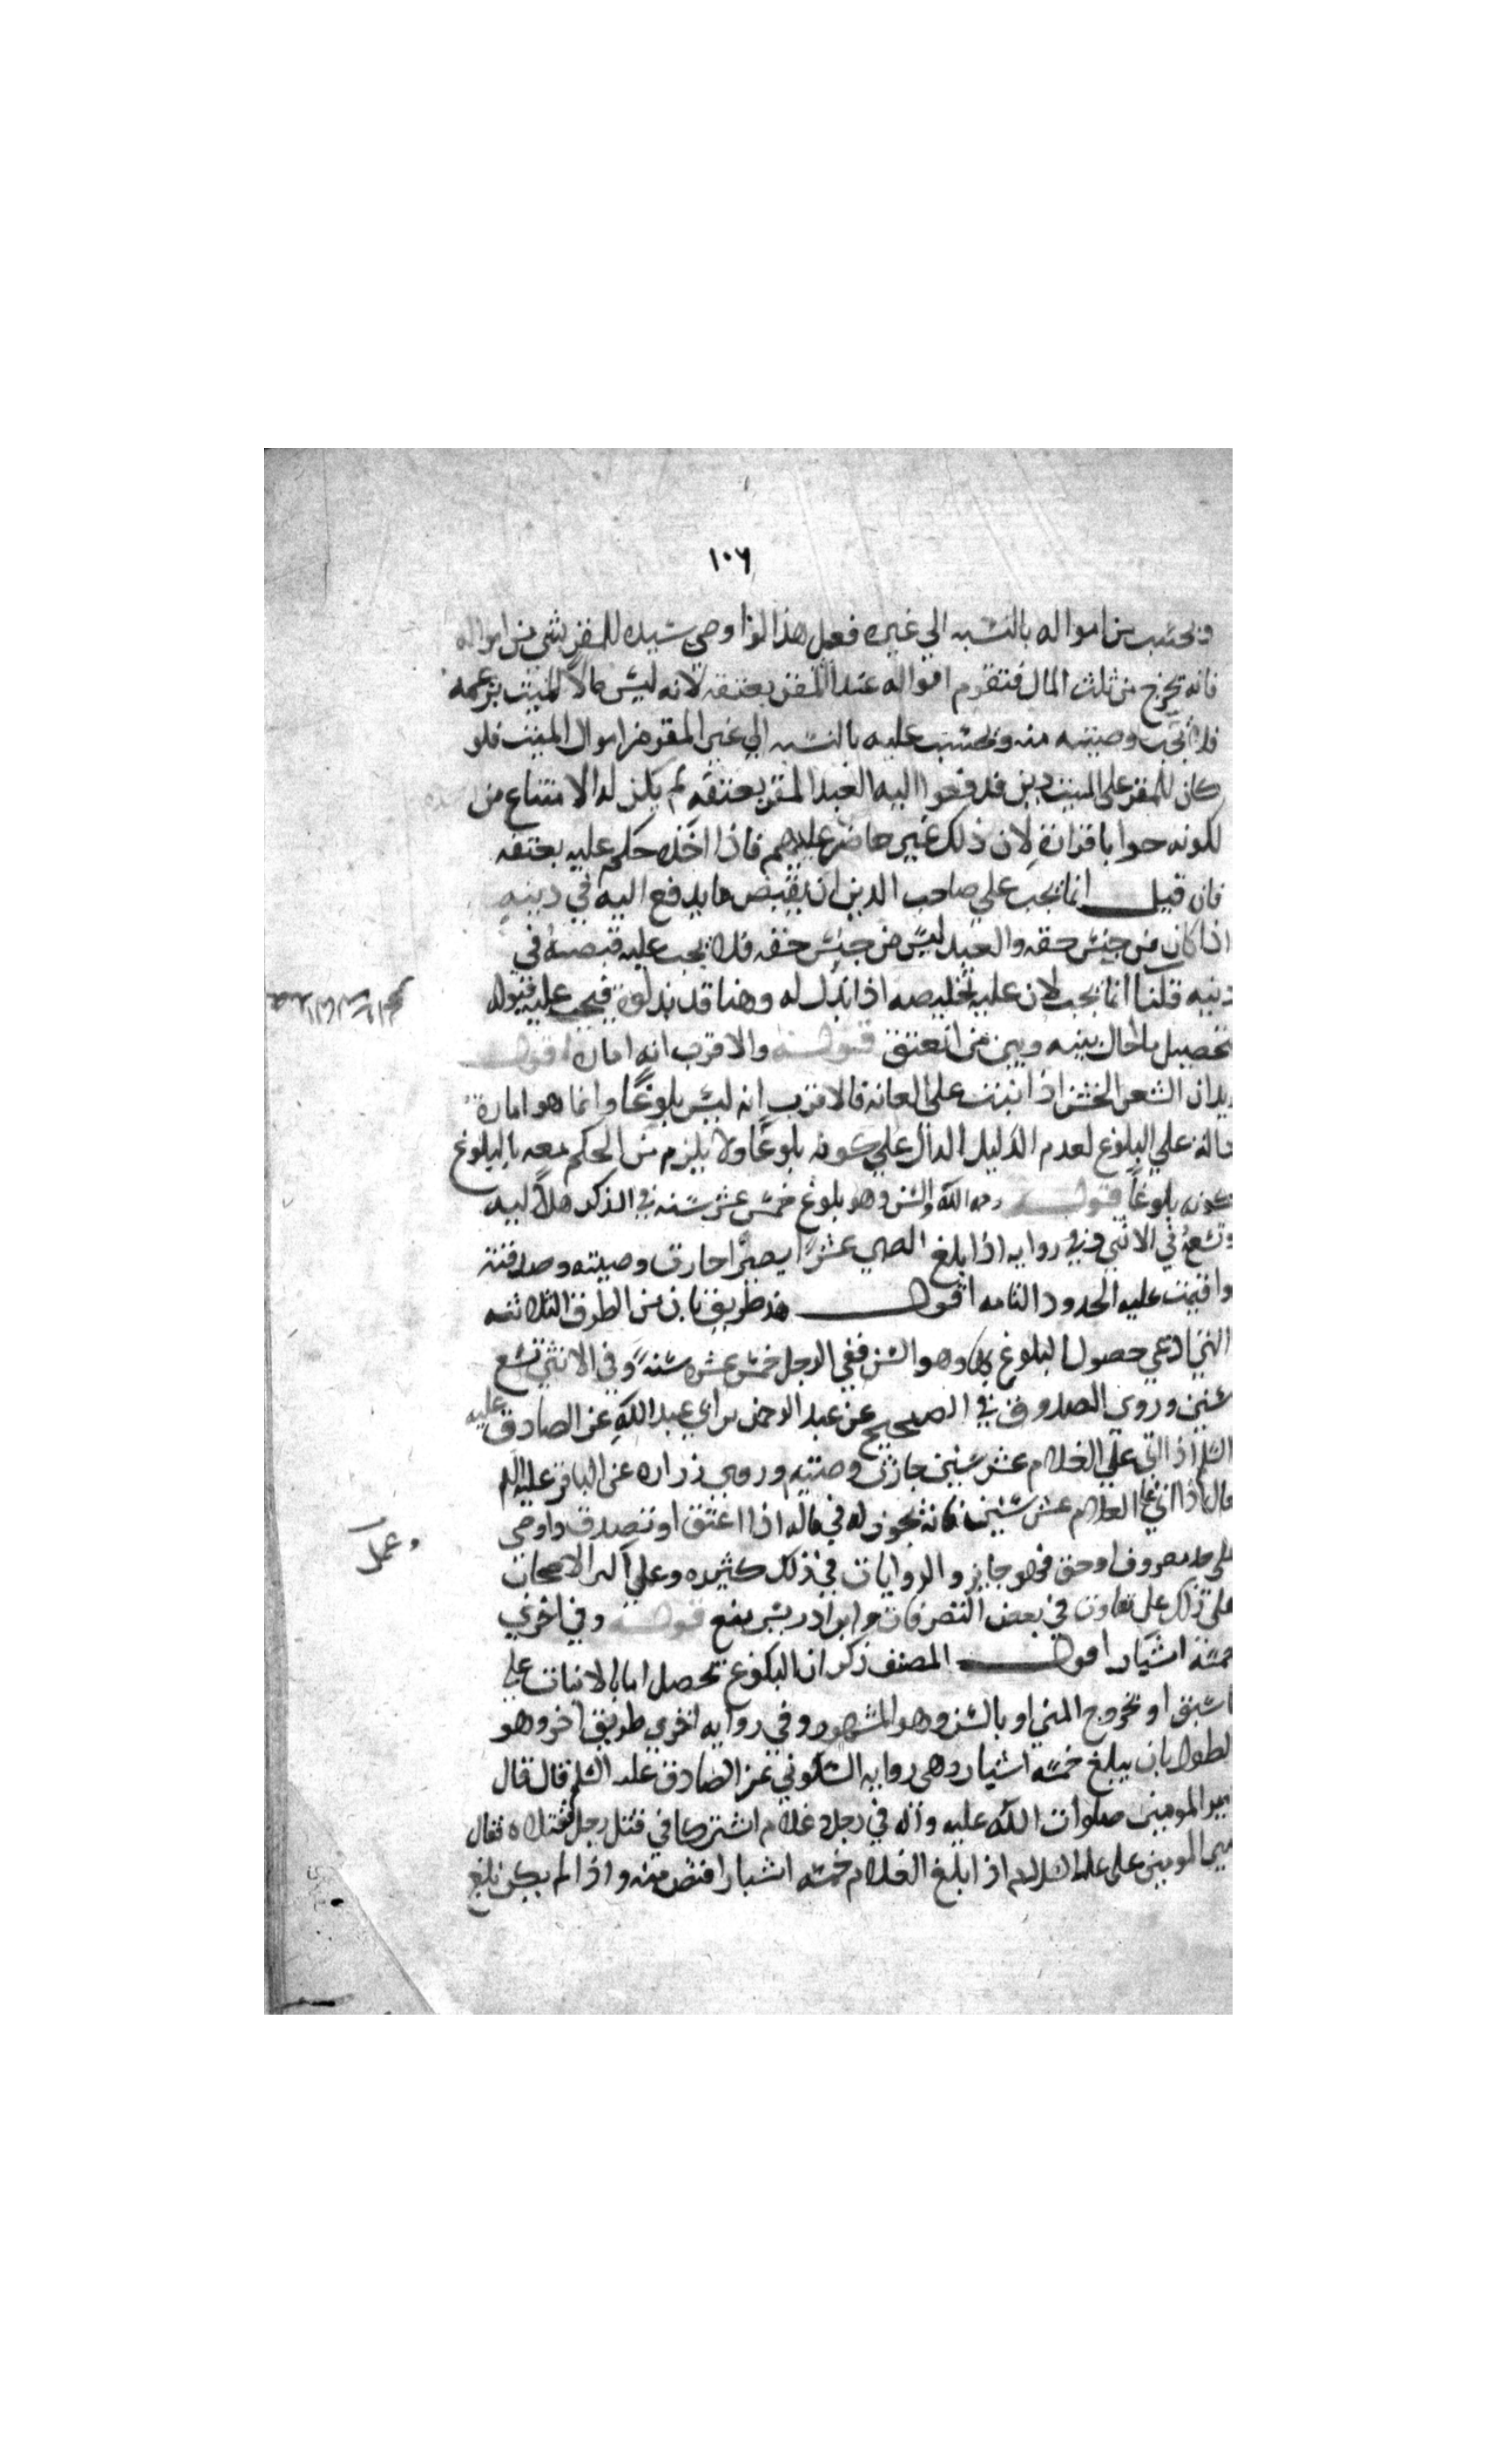 ١٠٦
ويحتسب من امواله بالنسبه الي غيره فعلي هذا لو اوصي سيده للمقر بشي من امواله
فانه يخرج من ثلث المال فتقوم امواله عند المقر بعتقه لانه ليس مالا للميت بزعمه
فلا تجب وصيته منه ويحتسب عليه بالنسبه الي غير المقر من اموال الميت فلو
كان للمقر علي الميت دين فدفعوا اليه العبد المقر بعتقه لم يكن له الامتناع من
لكونه حرا باقراره لان ذلك غير ماض عليهم فاذا اخذه حكم عليه بعتقه
فان قيل انما يجب علي صاحب الدين ان يقبض ما يدفع اليه في دينه
اذا كان من جنس حقه والعبد ليس من جنس حقه فلا يجب عليه قبضه في
دينه قلنا انما يجب لان عليه تخليصه اذا بذل له وهنا قد بذلوه فيجب عليه قبوله
تحصيل ما حال بينه وبين من انعتق قوله والاقرب انه امارة اقول
يد ان الشعر الخشن اذا نبت علي العانه فالاقرب انه ليس بلوغا وانما هو امارة
دالة علي البلوغ لعدم الدليل الدال علي كونه بلوغا ولا يلزم من الحكم معه بالبلوغ
كونه بلوغا قوله رحمه الله والسن وهو بلوغ خمس عشر سنه في الذكر هلالية
وتسع في الانثي وفي روايه اذا بلغ الصبي عشرا بصيرا جازت وصيته وصدقته
واقيمت عليه الحدود التامه اقول هذ طريق ثان من الطرق الثلاثه
التي ادعي حصول البلوغ بها وهو السن ففي الرجل خمس عشره سنة وفي الانثي تسع
سنين وروي الصدوق في الصحيح عن عبد الرحمن بن ابي عبد الله عن الصادق عليه
السلم اذا اتي علي الغلام عشر سنين جازت وصيته وروي زراره عن الباقر عليه السلم
قال اذا اتي علي الغلام عشر سنين فانه يجوز له في ماله اذا اعتق او تصدق واوصي
علي حد معروف او حق فهو جايز والروايات في ذلك كثيره وعلي اكثر الاصحاب
وعمل
علي ذلك علي تفاوت في بعض التصرفات وابن ادريس يمنع قوله وفي اخري
خمسة اشبار اقول المصنف ذكر ان البلوغ يحصل اما بالانبات علي
ما سبق او بخروج المني او بالسن وهو المشهور وفي روايه اخري طريق اخر وهو
لطول بان يبلغ خمسه اشبار وهي روايه السكوني عن الصادق عليه السلم قال قال
مير المومنين صلوات الله عليه واله في رجل وغلام اشتركا في قتل رجل فقتلاه فقال
مير المومنين علي عليه السلام اذا بلغ الغلام خمسه اشبار اقتص منه واذا لم يكن بلغ